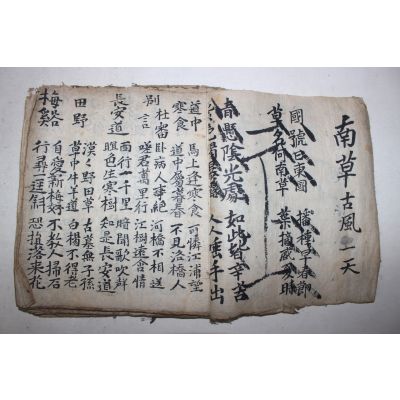 南草古風一天
國號曰東國 播種早春節
草名何南草 葉摘盛夏時
春懸陰光處 如此皆辛苦
人人垂手出
道中 馬上逢寒食 可憐江浦望
寒食 道中屬暮春 不見洛橋人
杜審 臥病人事絶 河橋不相送
別言 嗟君萬里行 江樹遠含情
長安道 西行一千里 時聞歌吹群
暝色生寒樹 知是長安道
田野 漠々野田草 古墓無子孫
草中牛羊道 白楊不得老
梅谿 自愛新梅好 不教人掃石
行尋一逕斜 恐損落來花